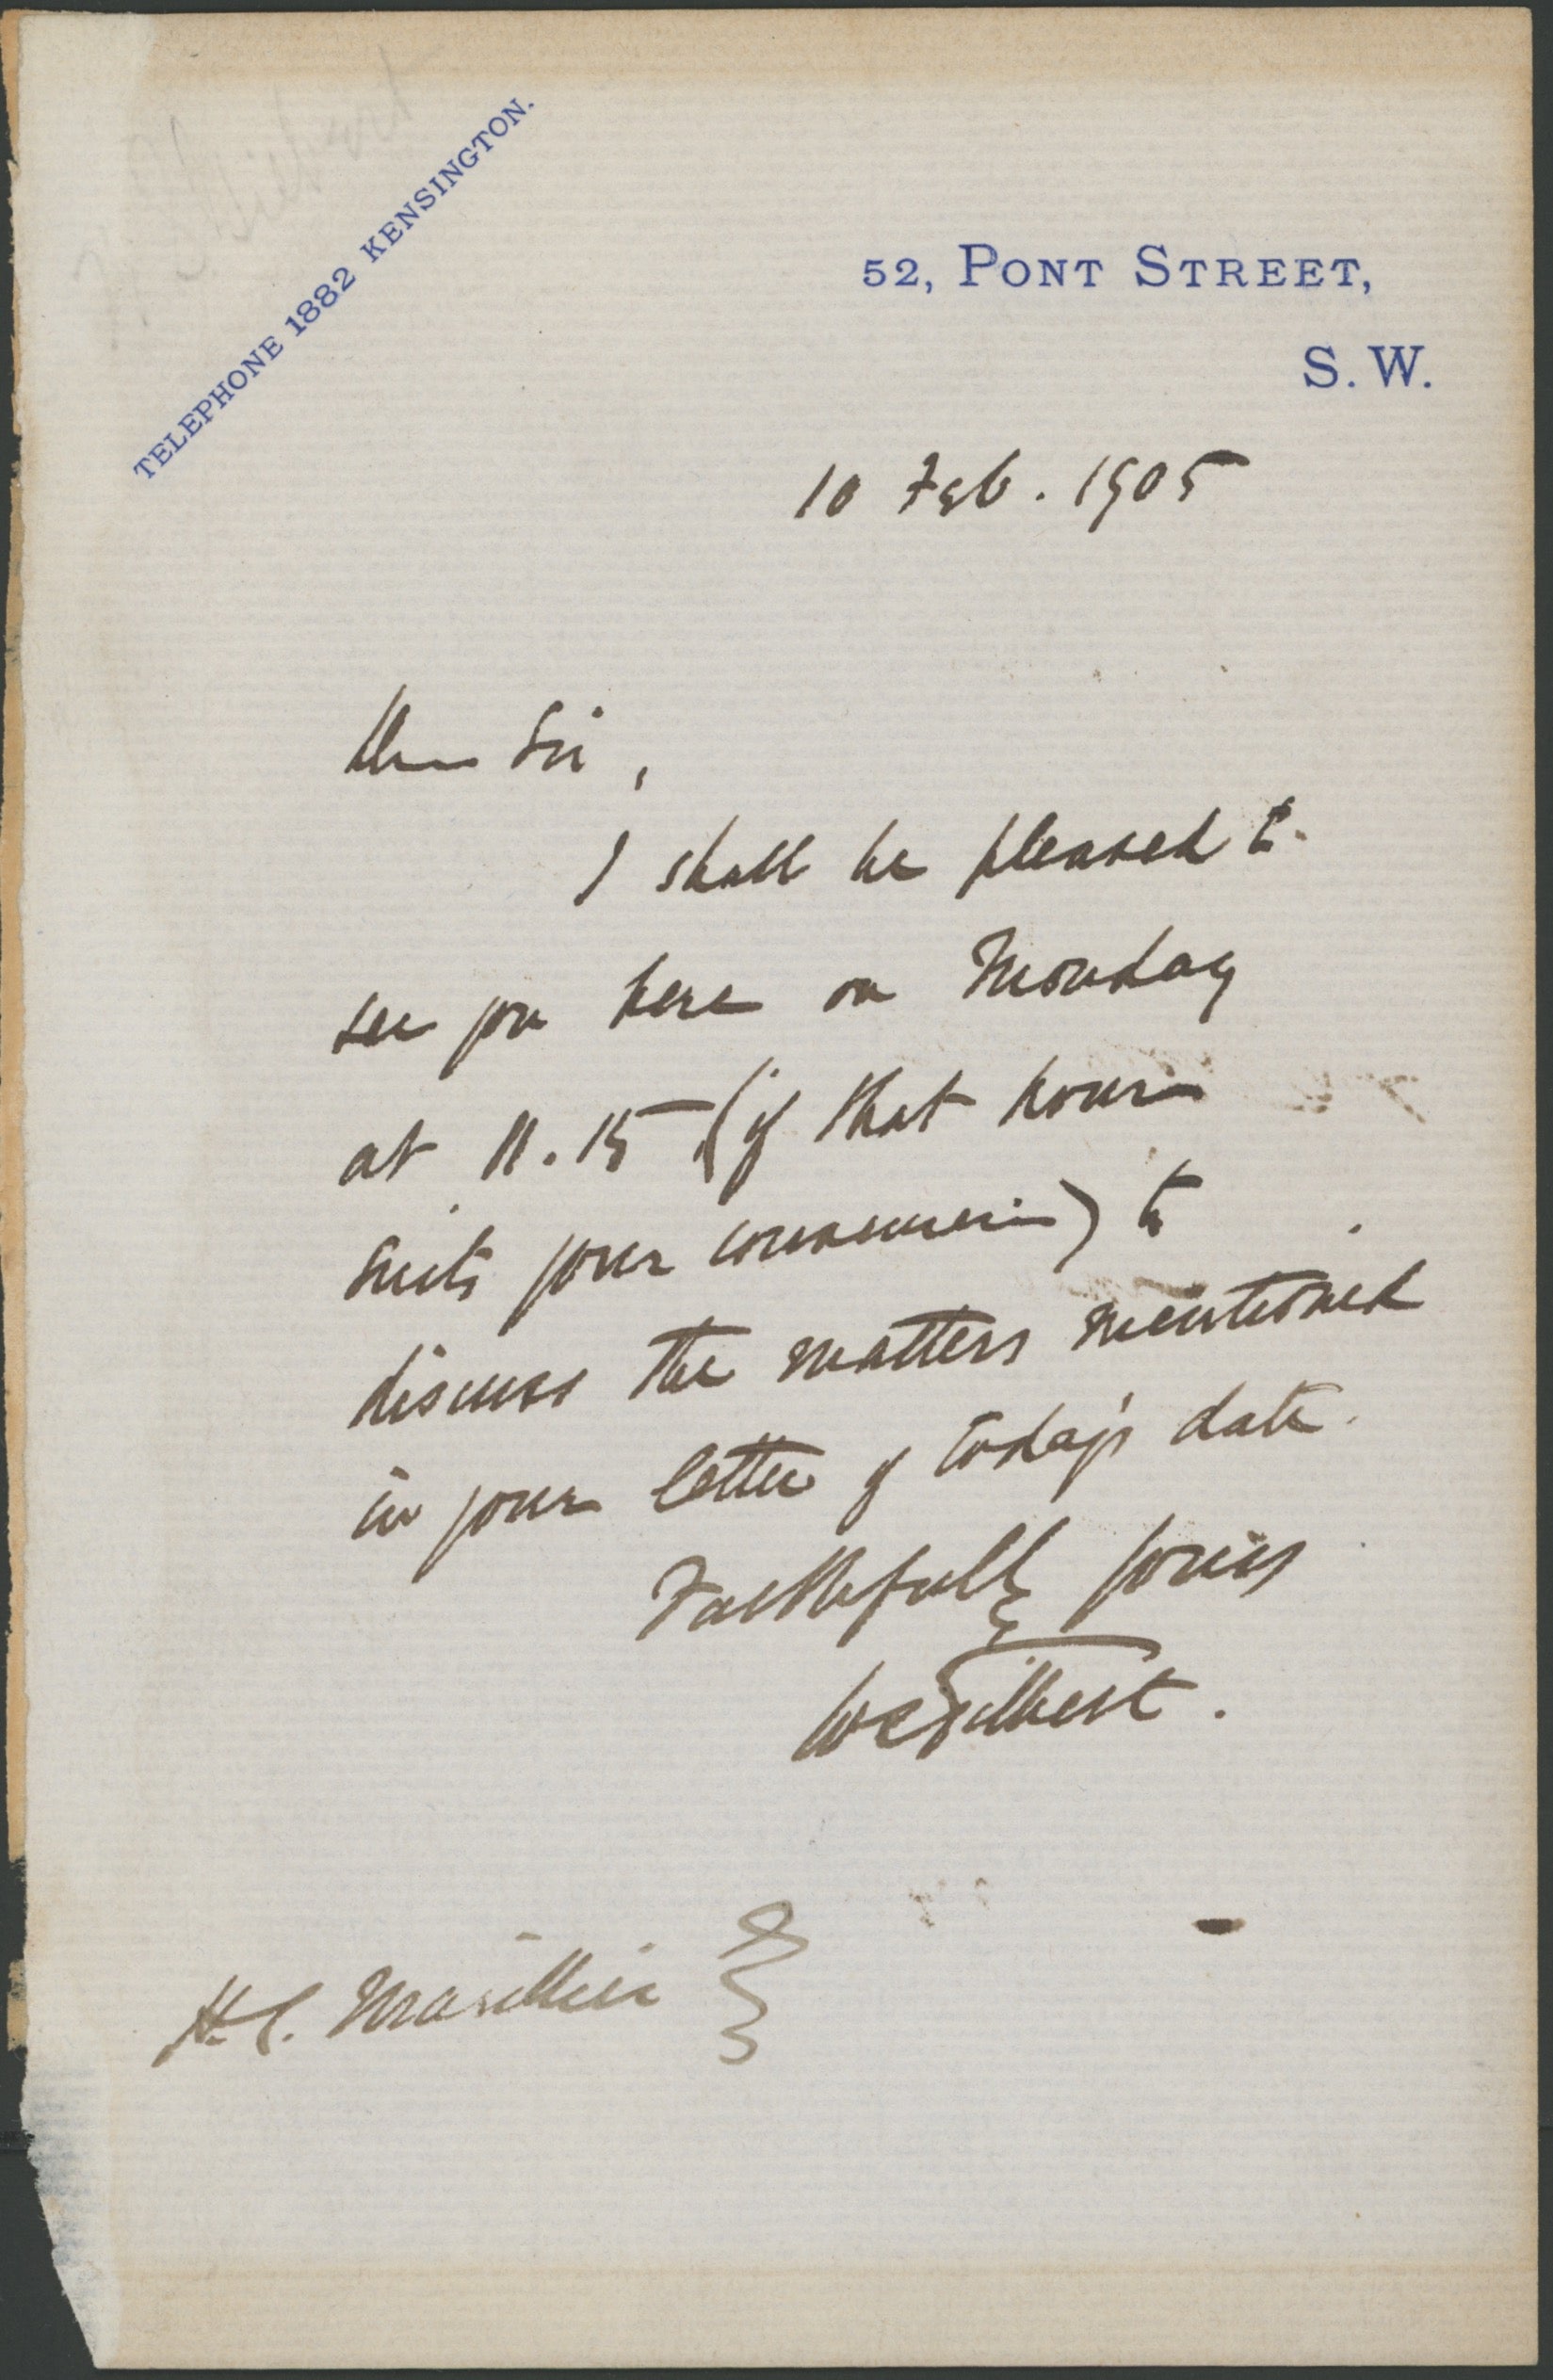 TELEPHONE 1882 KENSINGTON.
52, PONT STREET,
S. W.
10 Feb. 1905
Dear Sir,
I shall be pleased to
see you here on Monday
at 11.15 (if that hour
suits your convenience) to
discuss the matters mentioned
in your letter of today's date.
Faithfully yours
WSGilbert.
H.C. Marillier